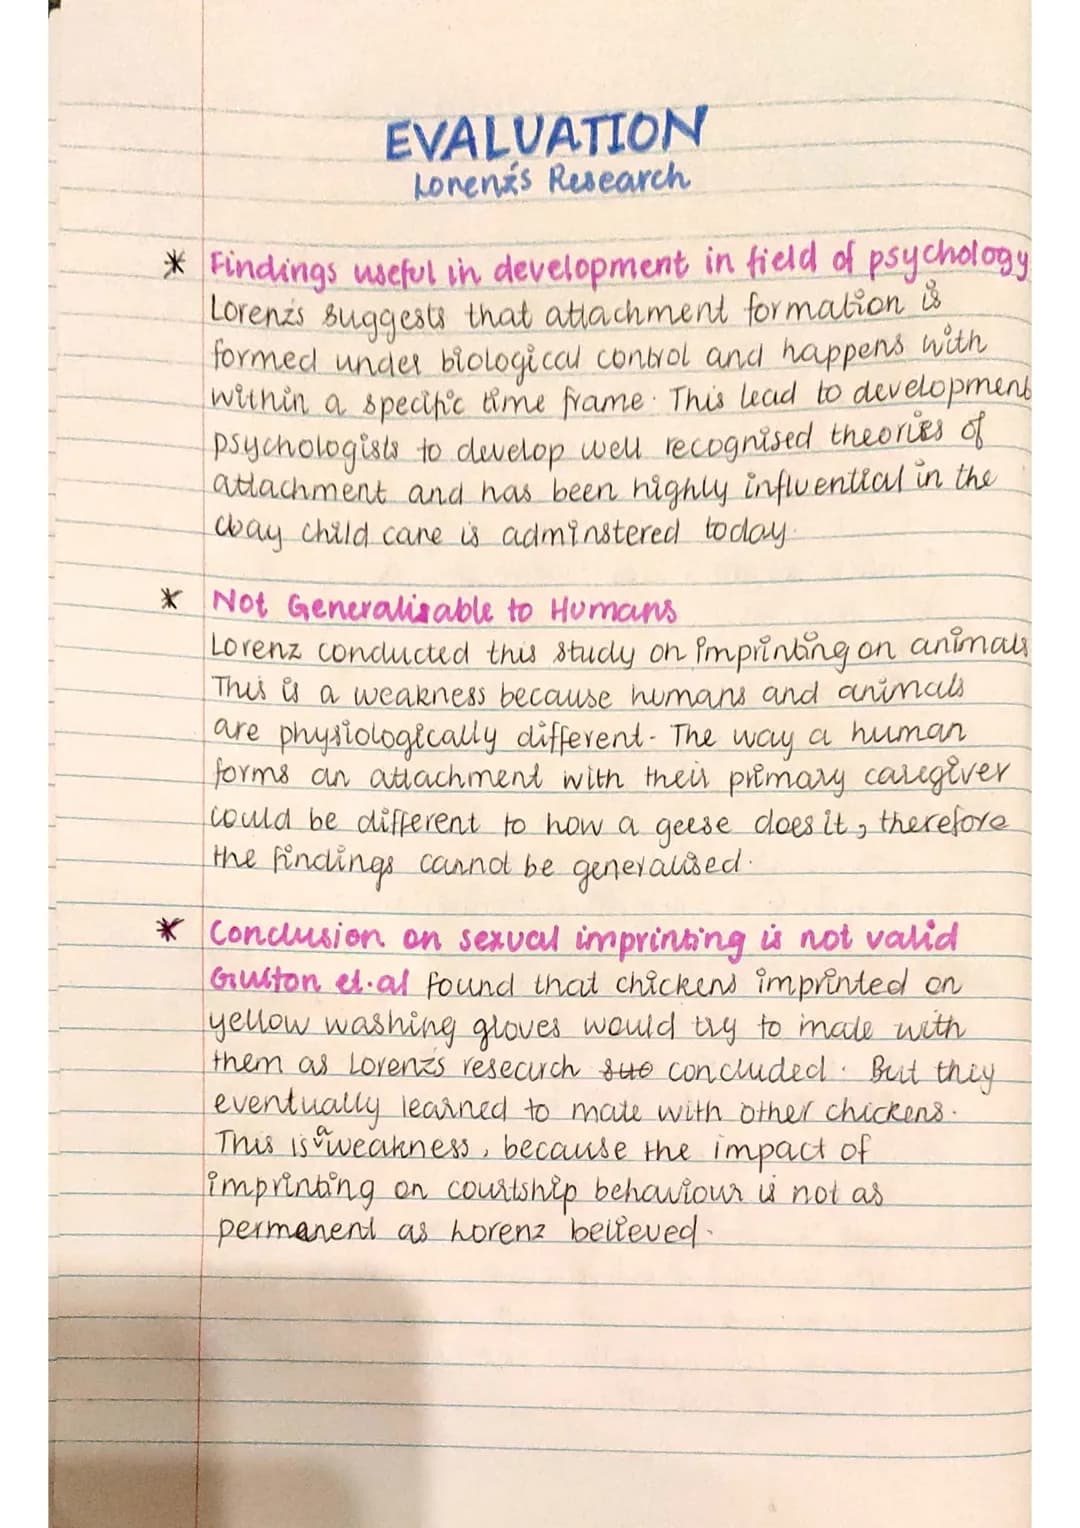 EVALUATION
Lorenz's Research
* Findings useful in development in field of psychology
Lorenz's suggests that attachment formation is
formed under biological control and happens with
within a specific time frame. This lead to development
psychologists to develop well recognised theories of
attachment and has been highly influential in the
way child care is adminstered today.
* Not Generalisable to Humans
Lorenz conducted this study on imprinting on animals
This is a weakness because humans and animals
are physiologically different. The way a human
forms an attachment with their primary caregiver
could be different to how a geese does it, therefore
the findings cannot be generalised.
* Conclusion on sexual imprinting is not valid
Guiton et.al found that chickens imprinted on
yellow washing gloves would try to mate with
them as Lorenz's research concluded. But they
eventually learned to mate with other chickens.
This is a weakness, because the impact of
imprinting on courtship behaviour is not as
permanent as Lorenz believed.